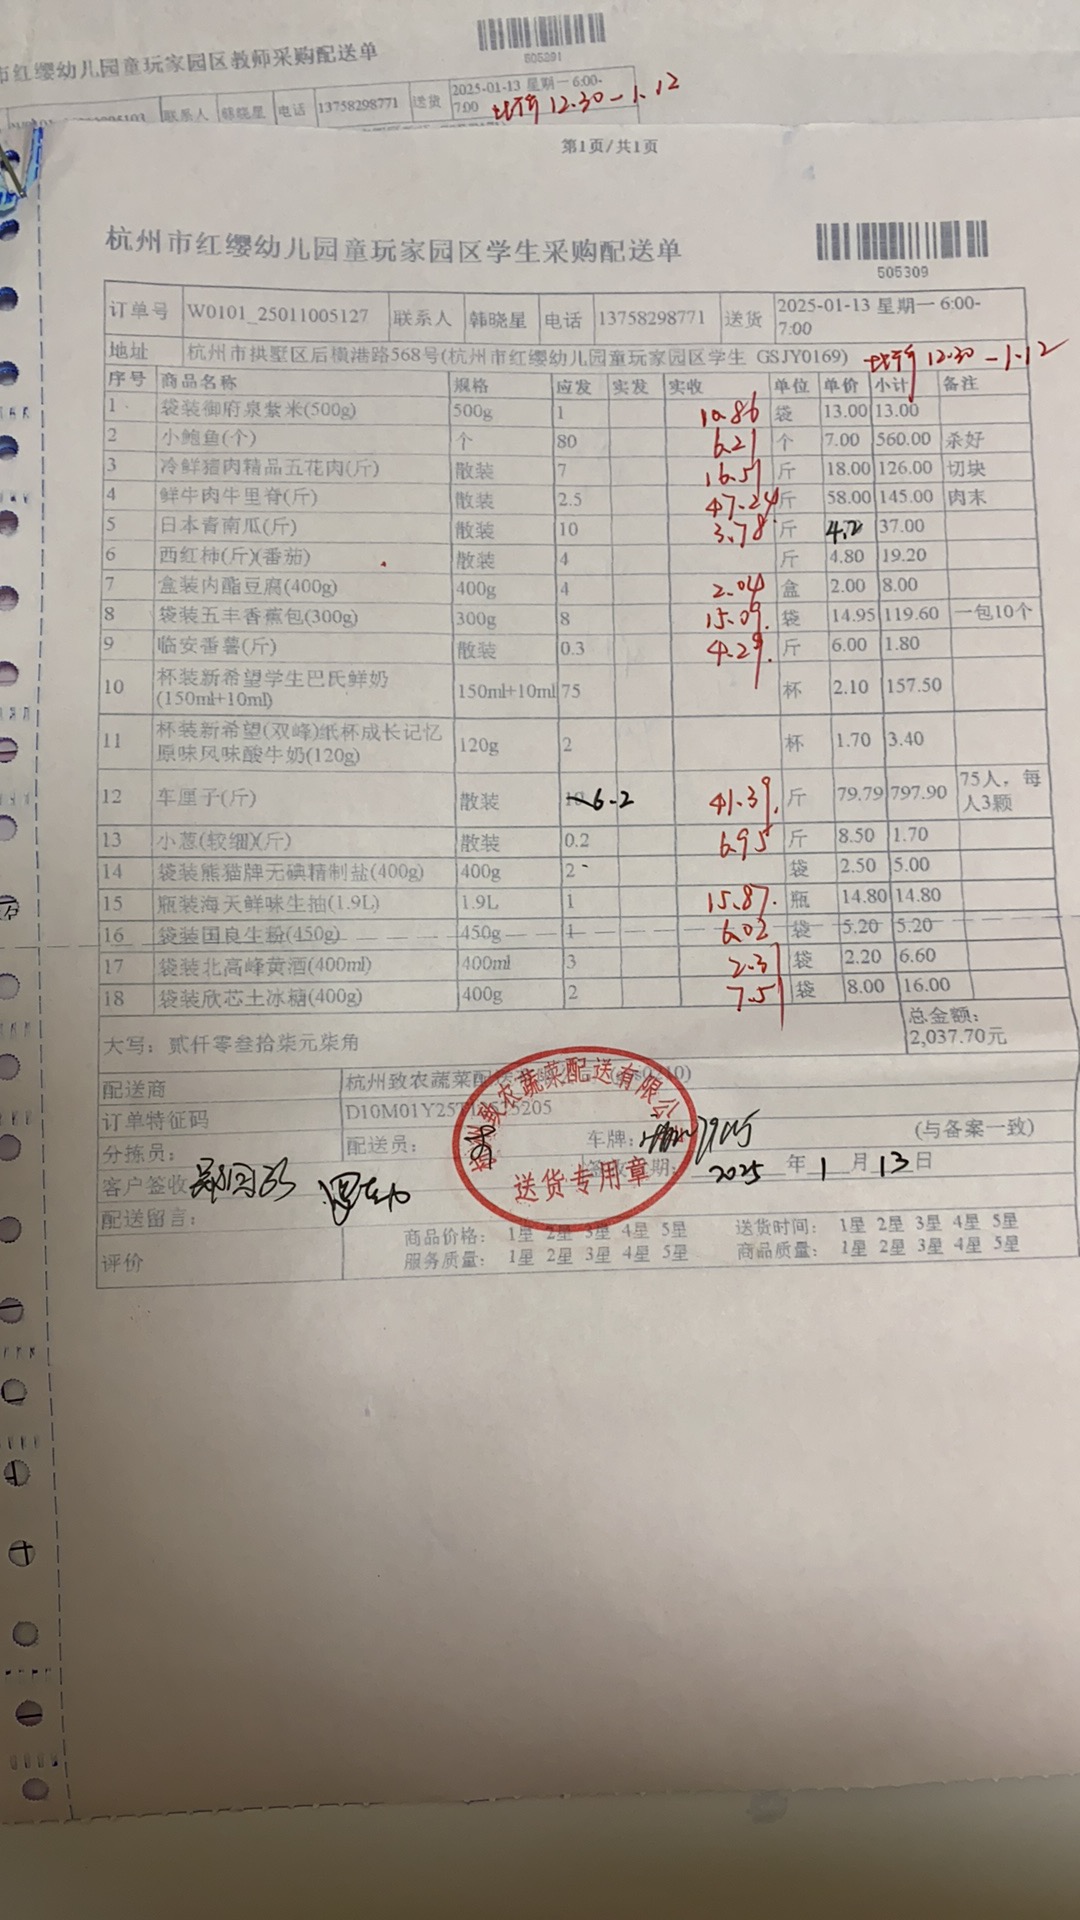 市红缨幼儿园童玩家园区教师采购配送单
505291
联系人 韩晓星 电话 13758298771 送货 2025-01-13 星期一 6:00-
7:00 比价 12.30-1.12
第1页/共1页
杭州市红缨幼儿园童玩家园区学生采购配送单
505309
订单号 W0101_25011005127 联系人 韩晓星 电话 13758298771 送货 2025-01-13 星期一 6:00-
7:00
地址 杭州市拱墅区后横港路568号(杭州市红缨幼儿园童玩家园区学生 GSJY0169) 比价 12.30-1.12
序号 商品名称 规格 应发 实发 实收 单位 单价 小计 备注
1 袋装御府泉紫米(500g) 500g 1 10.86 袋 13.00 13.00
2 小鲍鱼(个) 个 80 6.21 个 7.00 560.00 杀好
3 冷鲜猪肉精品五花肉(斤) 散装 7 16.51 斤 18.00 126.00 切块
4 鲜牛肉牛里脊(斤) 散装 2.5 47.24 斤 58.00 145.00 肉末
5 日本青南瓜(斤) 散装 10 3.78 斤 4.2 37.00
6 西红柿(斤)(番茄) 散装 4 斤 4.80 19.20
7 盒装内酯豆腐(400g) 400g 4 2.04 盒 2.00 8.00
8 袋装五丰香蕉包(300g) 300g 8 15.09 袋 14.95 119.60 一包10个
9 临安番薯(斤) 散装 0.3 4.29 斤 6.00 1.80
10 杯装新希望学生巴氏鲜奶
(150ml+10ml) 150ml+10ml 75 杯 2.10 157.50
11 杯装新希望(双峰)纸杯成长记忆
原味风味酸牛奶(120g) 120g 2 杯 1.70 3.40
12 车厘子(斤) 散装 10 6.2 41.39 斤 79.79 797.90 75人，每
人3颗
13 小葱(较细)(斤) 散装 0.2 6.95 斤 8.50 1.70
14 袋装熊猫牌无碘精制盐(400g) 400g 2 袋 2.50 5.00
15 瓶装海天鲜味生抽(1.9L) 1.9L 1 15.87 瓶 14.80 14.80
16 袋装国良生粉(450g) 450g 1 6.02 袋 5.20 5.20
17 袋装北高峰黄酒(400ml) 400ml 3 2.3 袋 2.20 6.60
18 袋装欣芯土冰糖(400g) 400g 2 7.5 袋 8.00 16.00
大写：贰仟零叁拾柒元柒角 总金额：
2,037.70元
配送商 杭州致农蔬菜配送有限公
订单特征码 D10M01Y25 5205
分拣员： 配送员： 车牌： (与备案一致)
客户签收 2025 年 1 月 13 日
送货专用章
配送留言：
评价 商品价格： 1星 2星 3星 4星 5星 送货时间： 1星 2星 3星 4星 5星
服务质量： 1星 2星 3星 4星 5星 商品质量： 1星 2星 3星 4星 5星